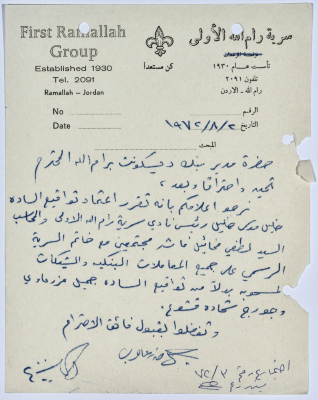 First Ramallah
Group
Established 1930
Tel. 2091
Ramallah - Jordan
No
Date
سرية رام الله الأولى
كن مستعداً
تأسست عام ١٩٣٠
تلفون ٢٠٩١
رام الله - الاردن
الرقم
التاريخ ١٩٧٢/٨/٢
المبحث
حضرة مدير بنك ديسكونت برام الله المحترم
تحية واحتراماً وبعد ،
نرجو اعلامكم بانه تقرر اعتماد تواقيع السادة
خليل رئيس نادي سرية رام الله الاولى
السيد لطفي مجتمعين مع خاتم السرية
الرسمي على جميع المعاملات البنكية والشيكات
المسحوبة بدلاً من تواقيع السادة جميل
وجورج شحادة
وتفضلوا بقبول فائق الاحترام